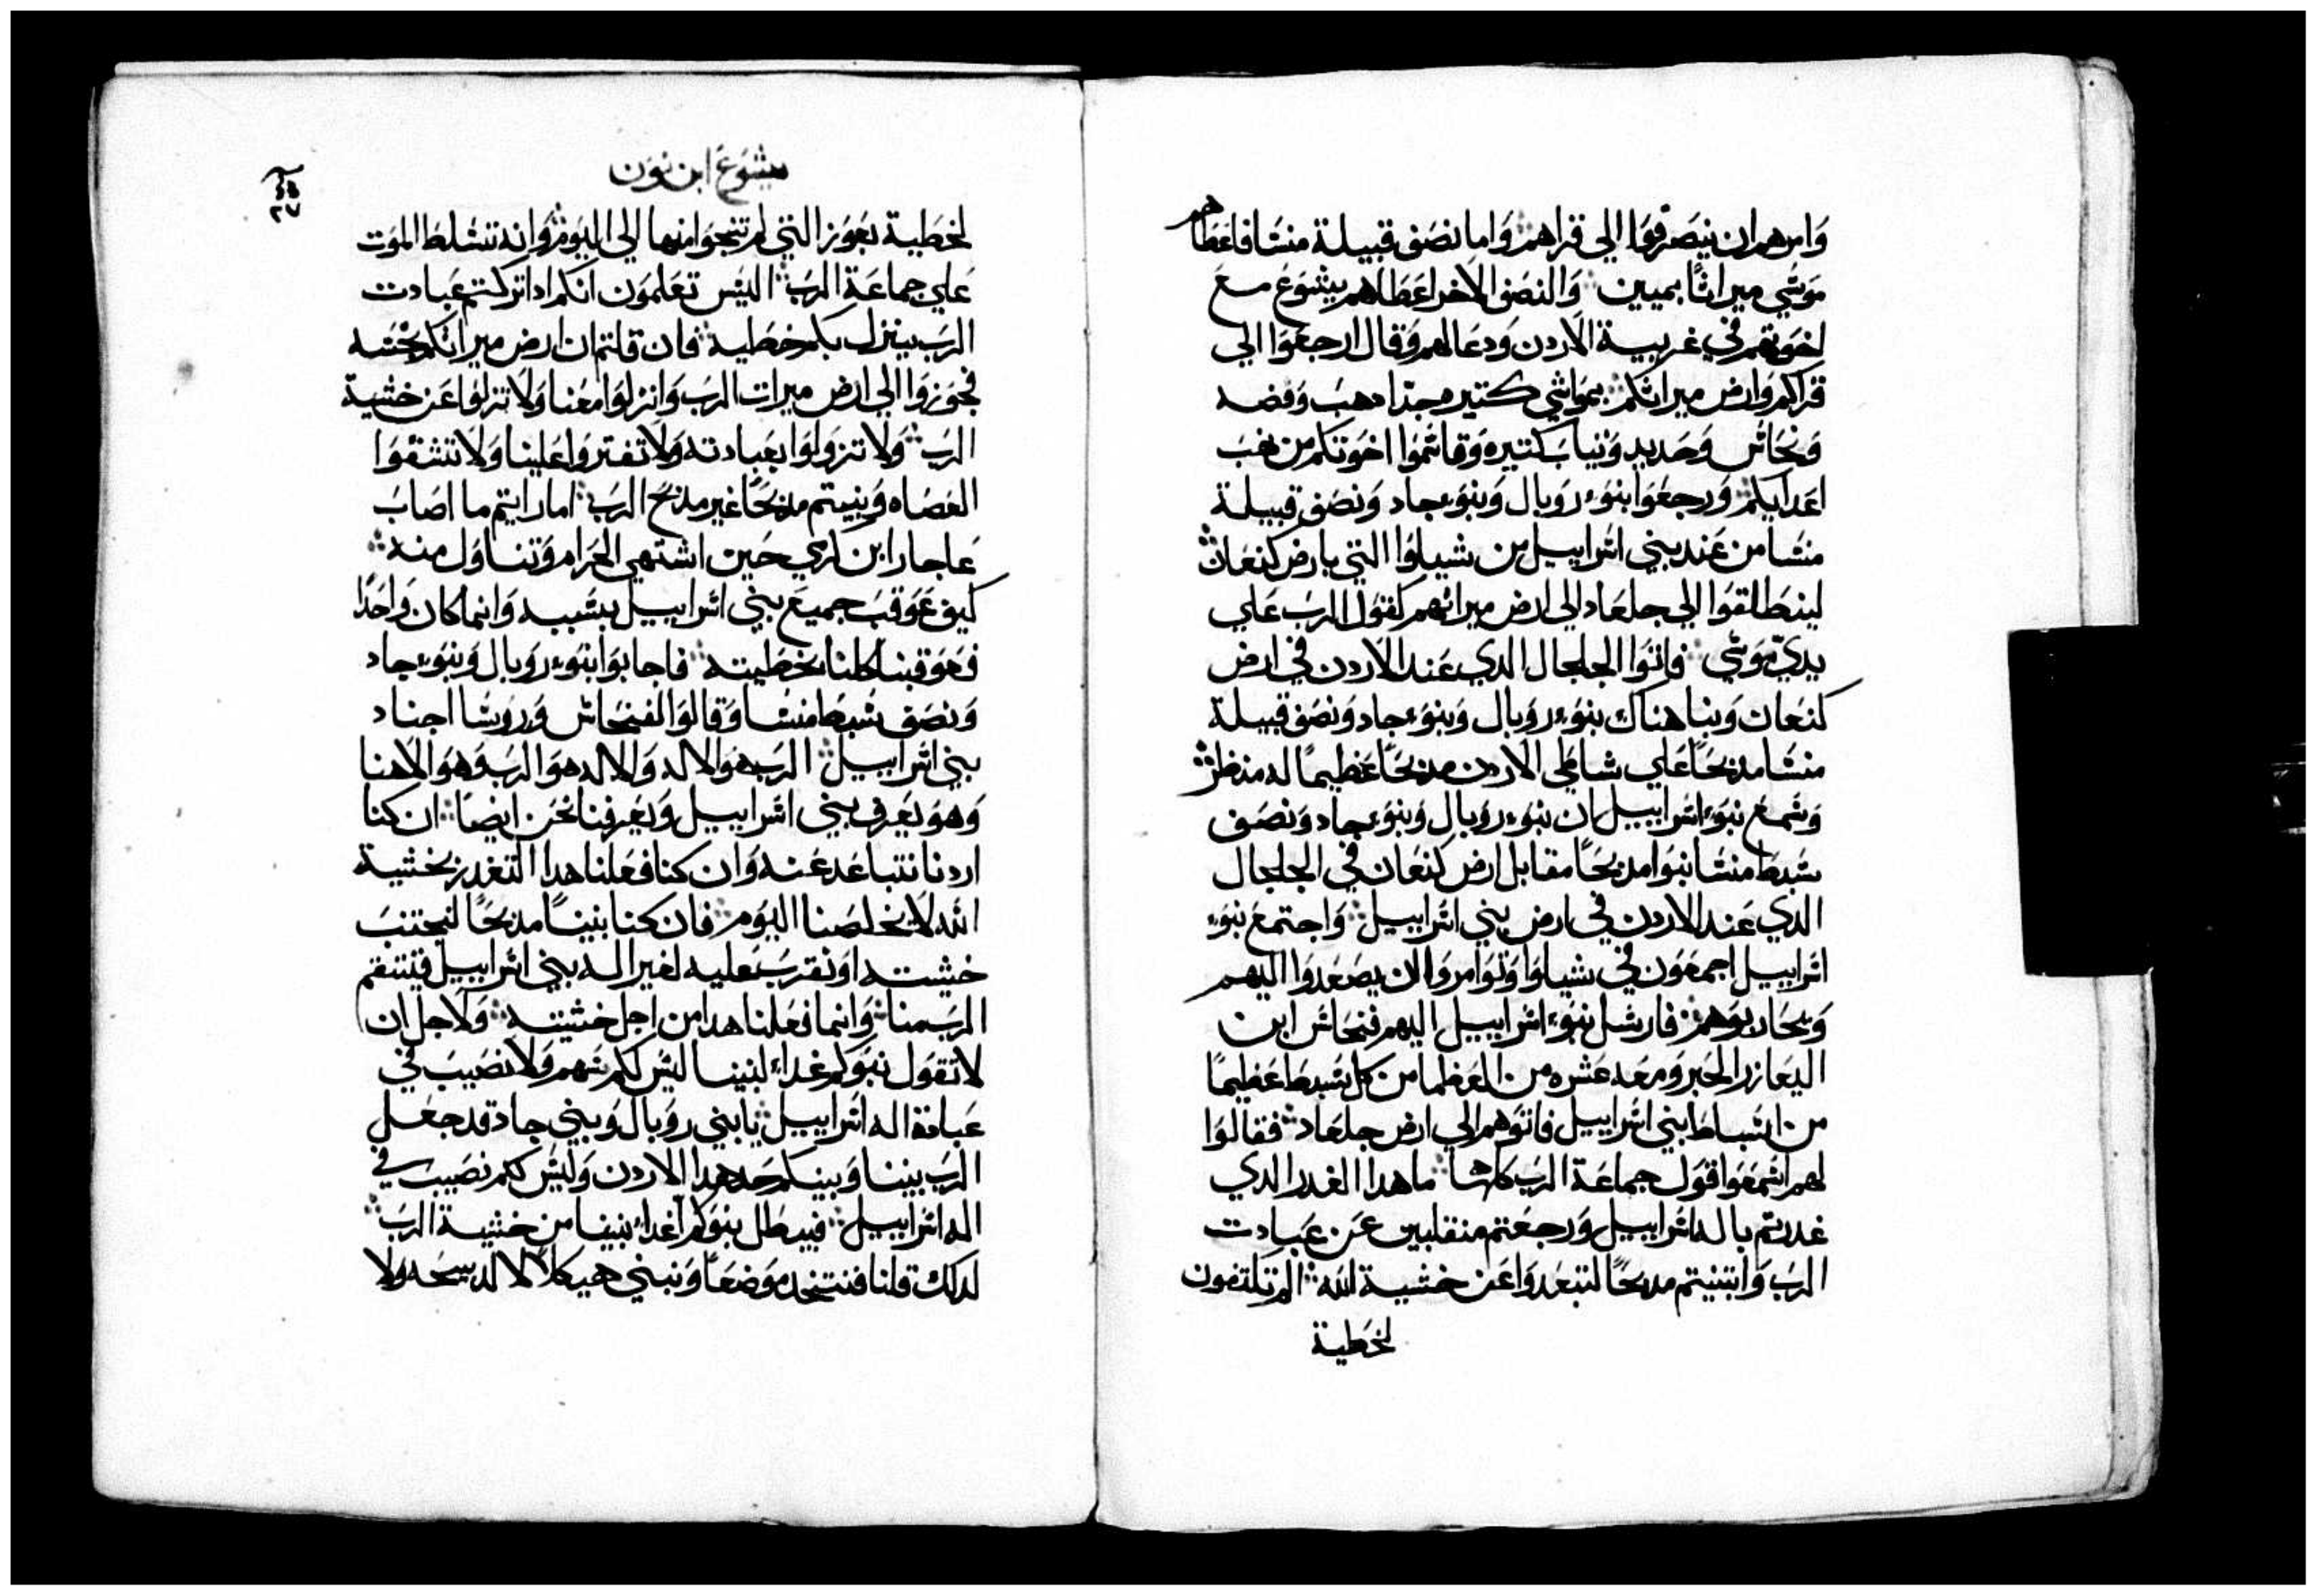 وامرهم ان ينصرفوا الي قراهم وَاما نصَف قبيلة منسَا فاعَطاهم
موَسَي ميراثاً بميين وَالنصَف الاخر اعَطاهم يشوَع مع
اخوَتهم في غربية الاردن وَدعَا لهم وَقال ارجعَوا الي
قراكم وَارض ميراثكم بموَاشي كتيره جدّا دهبَ وَفضه
وَنحَاسَ وَحَديد وَثيابَ كتيره وَقاسَموا اخوَتكم من نهبَ
اعَدايكم وَرجعَوا بنوَء روَبال وَبنوَء جاد وَنصَف قبيلة
منسَا من عَند بني اسَراييل من شيلوا التي بارض كنعَان
لينطَلقوَا الي جلعَاد الي ارض ميراثهم كقوَل الربَ عَلي
يديّ موَسَي فاتوَا الجلجال الدي عَند الاردن في ارض
كنعَان وَبنا هناك بنوَء روَبال وَبنوَء جاد وَنصَف قبيلة
منسَا مدبحَاً عَلي شاطَي الاردن مدبحَاً عَظيماً له منظر
وَسَمعَ بنوَء اسَراييل ان بنوَء روَبال وَبنوَء جاد وَنصَف
سَبط منسَا بنوَا مدبحَاً مقابل ارض كنعَان في الجلجال
الدي عَند الاردن في ارض بني اسَراييل وَاجتمعَ بنوَء
اسَراييل اجمعَوَن في شيلوَا وَتوَامروَا ان يصَعَدوَا اليهم
وَيحَاربوَهم فارسَل بنوَء اسَراييل اليهم فنحَاسَ ابن
اليعَازر الحَبر وَمعَه عَشره من العَظما من كل سَبط عَظيماً
من اسَباط بني اسَراييل فاتوَهم الي ارض جلعَاد فقالوَا
لهم اسَمعَوا قوَل جماعَة الربَ كلها ما هدا الغدر الدي
غدرتم باله اسَراييل وَرجعَتم منقلبين عَن عَبادت
الربَ وَابتنيتم مدبحَاً لتبعَدوَا عَن خشية الله الم تلتفون
لخطَية
يشوَعَ ابن نوَن
لخطَية بعَوَر التي لم تنجوَا منها الي اليوَم وَانه تسَلط الموَت
عَلي جماعَة الربَ اليسَ تعَلموَن انكم ادا تركتم عَبادت
الربَ ينزل بكم خطَية فان قلتم ان ارض ميراثكم نجسَه
فجوَزوَا الي ارض ميرات الربَ وَانزلوَا معَنا وَلا تزلوَا عَن خشية
الربَ وَلا تزوَلوَا بعَبادته وَلا تفتروَا عَلينا وَلا تشقوَا
العَصَاه وَبنيتم مدبحَاً غير مدبحَ الربَ اما رايتم ما اصَابَ
عَاجار ابن كرمي حَين اشتهي الحَرام وَتناوَل منه
كيف عَوَقبَ جميعَ بني اسَراييل بسَببه وَانما كان وَاحَدًا
فعَوَقبنا كلنا بخطَيته فاجابوَا بنوَء روَبال وَبنوَء جاد
وَنصَف سَبط منسَا وَقالوَا لفنحَاسَ وَروَوسَا اجناد
بني اسَراييل الربَ هوَ الاله وَالاله هوَ الربَ وَهوَ الاهنا
وَهوَ يعَرف بني اسَراييل وَيعَرفنا نحَن ايضَاً ان كنا
اردنا نتباعَد عَنه وَان كنا فعَلنا هدا التغدر بخشية
الله لا يخلصَنا اليوَم فان كنا بنينا مدبحَاً لنجتنبَ
خشيته اوَ نقربَ عَليه لغير اله بني اسَراييل فينتقم
الربَ منا وَانما فعَلنا هدا من اجل خشيته وَلاجل ان
لا تقوَل بنوَكم غداء لبنينا ليسَ لكم سَهم وَلا نصَيبَ في
عَبادة اله اسَراييل يا بني روَبال وَبني جاد قد جعَل
الربَ بيننا وَبينكم حَد هدا الاردن وَليسَ لكم نصَيبَ في
اله اسَراييل فيبطَل بنوَكم غداء بنينا من خشية الربَ
لدلك قلنا فنتخد موَضعَاً وَنبني هيكلاً لا لدبيحه وَلا